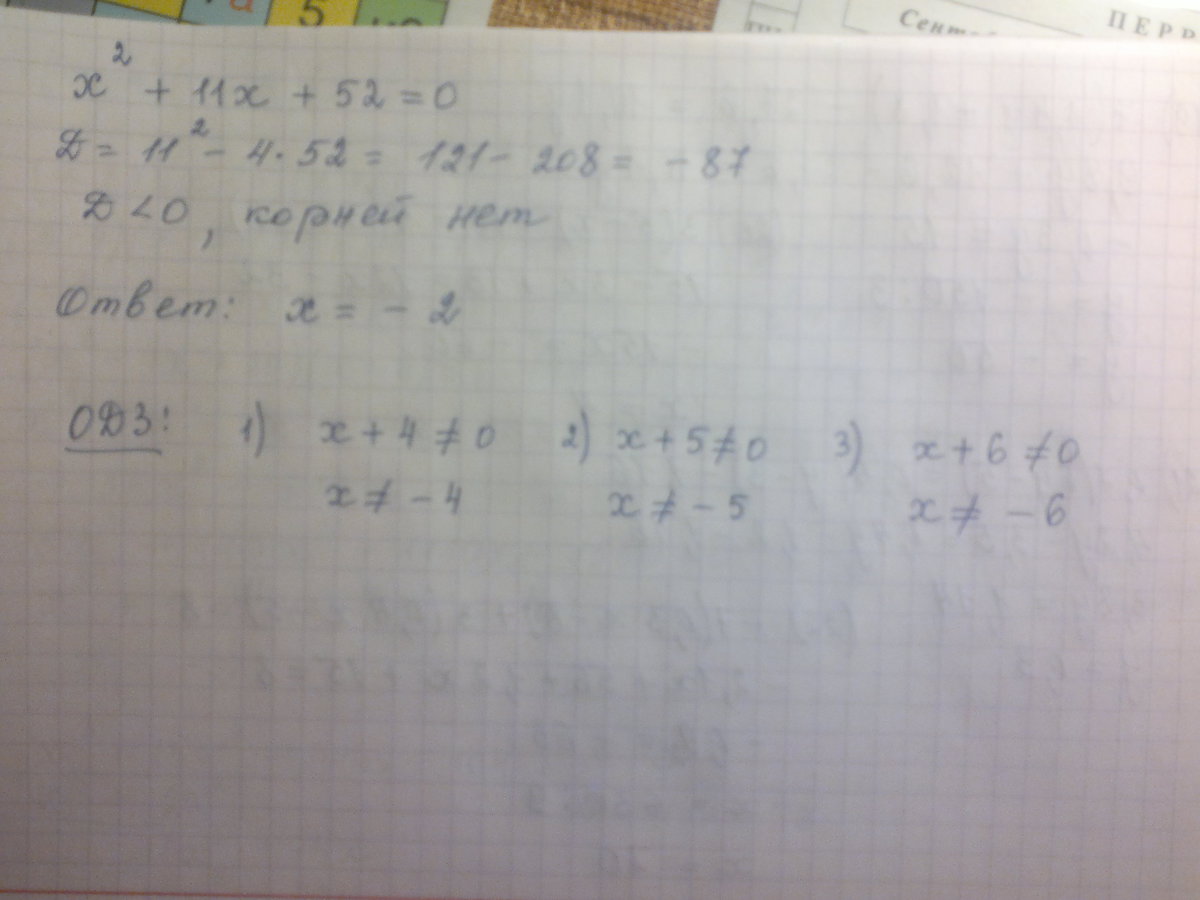 5
Сентяб
ПЕРР
x² + 11x + 52 = 0
D = 11² - 4·52 = 121 - 208 = -87
D < 0, корней нет
Ответ: x = - 2
ОДЗ: 1) x + 4 ≠ 0 2) x + 5 ≠ 0 3) x + 6 ≠ 0
x ≠ - 4 x ≠ - 5 x ≠ - 6